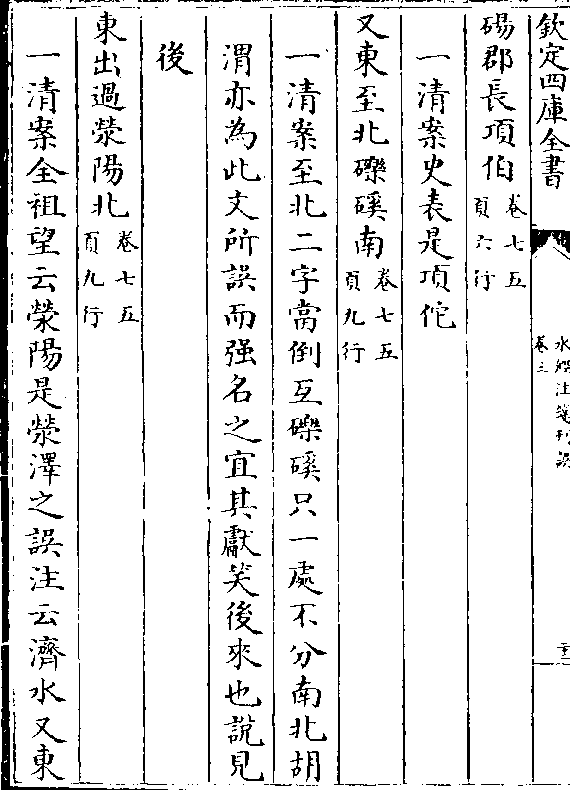 欽定四庫全書
水經注箋刊誤
卷三
碭郡長項伯 卷七五 頁六行
一清案史表是項佗
又東至北礫磎南 卷七五 頁九行
一清案至北二字當倒互礫磎只一處不分南北胡
渭亦為此文所誤而强名之宜其獻笑後來也說見
後
東出過滎陽北 卷七五 頁九行
一清案全祖望云滎陽是滎澤之誤注云濟水又東